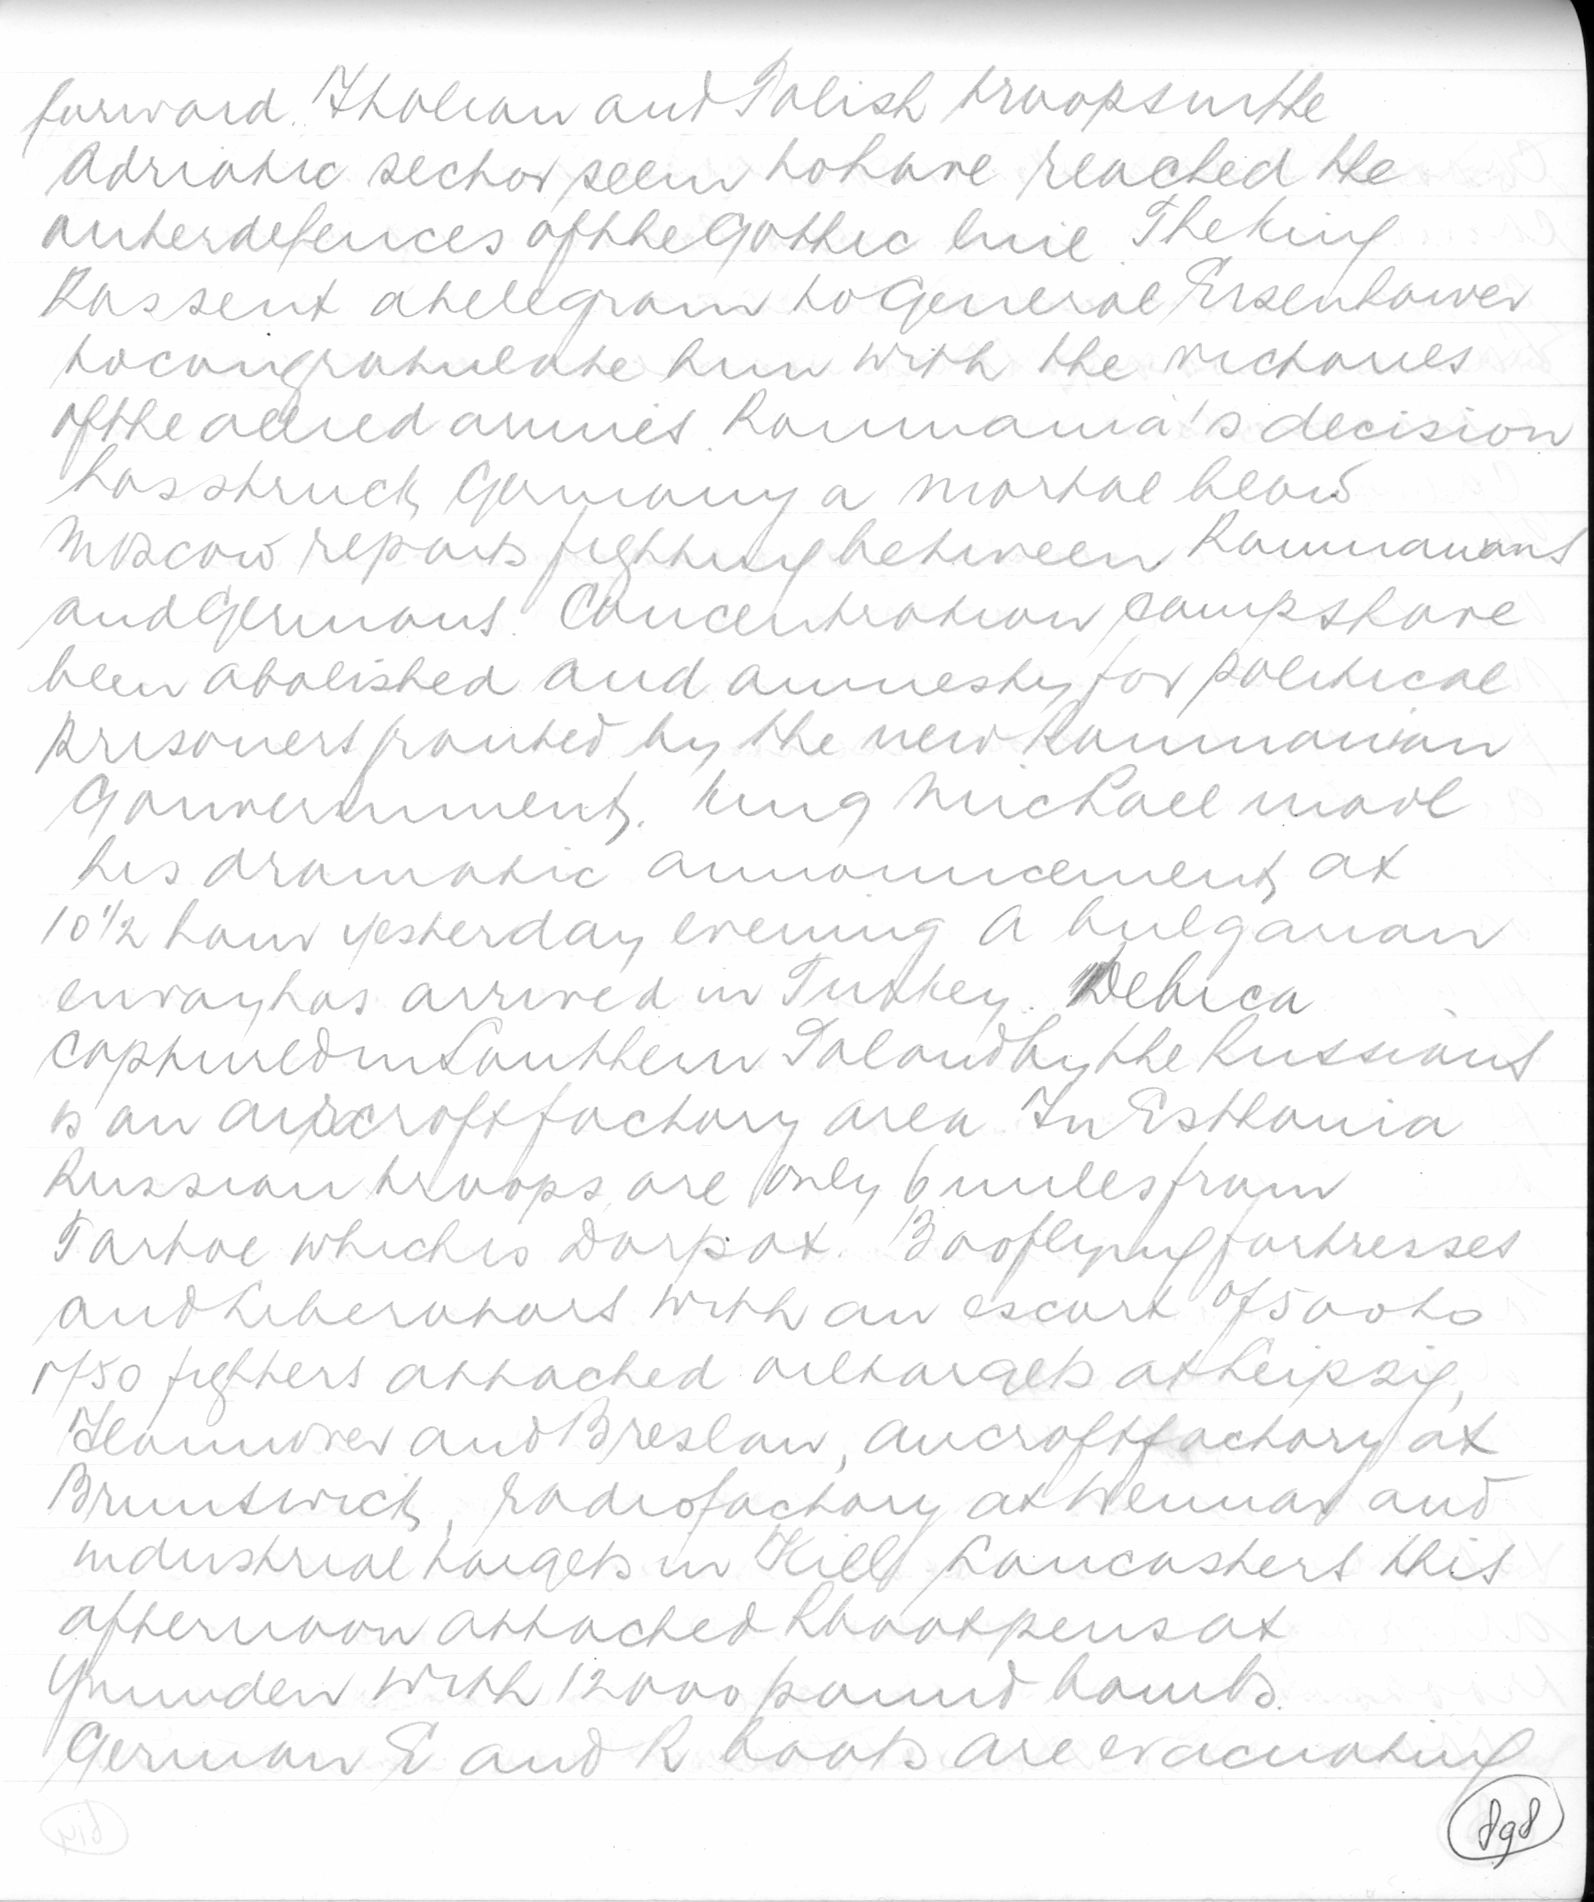 forward. Italian and Polish troops in the
Adriatic sector seem to have reached the
outer defences of the Gothic line. The King
has sent a telegram to General Eisenhower
to congratulate him with the victories
of the allied armies. Roumania's decision
has struck Germany a mortal blow.
Moscow reports fighting between Roumanians
and Germans. Concentration camps have
been abolished and amnesty for political
prisoners granted by the new Roumanian
Gouvernment. King Michael made
his dramatic announcement at
10 1/2 hour yesterday evening. A bulgarian
envoy has arrived in Turkey. Debica
captured in Southern Poland by the Russians
is an aircraft factory area. In Esthonia
Russian troops are only 6 miles from
Tartoe which is Dorpat. 1300 flying fortresses
and Liberators with an escort of 500 to
750 fighters attacked oiltargets at Leipzig,
Hannover and Breslau, aircraftfactory at
Brunswick, radiofactory at Weimar and
industrial targets in Kiel. Lancasters this
afternoon attacked Rboatpens at
Ymuiden with 12000 pound bombs.
German E and R boats are evacuating
898